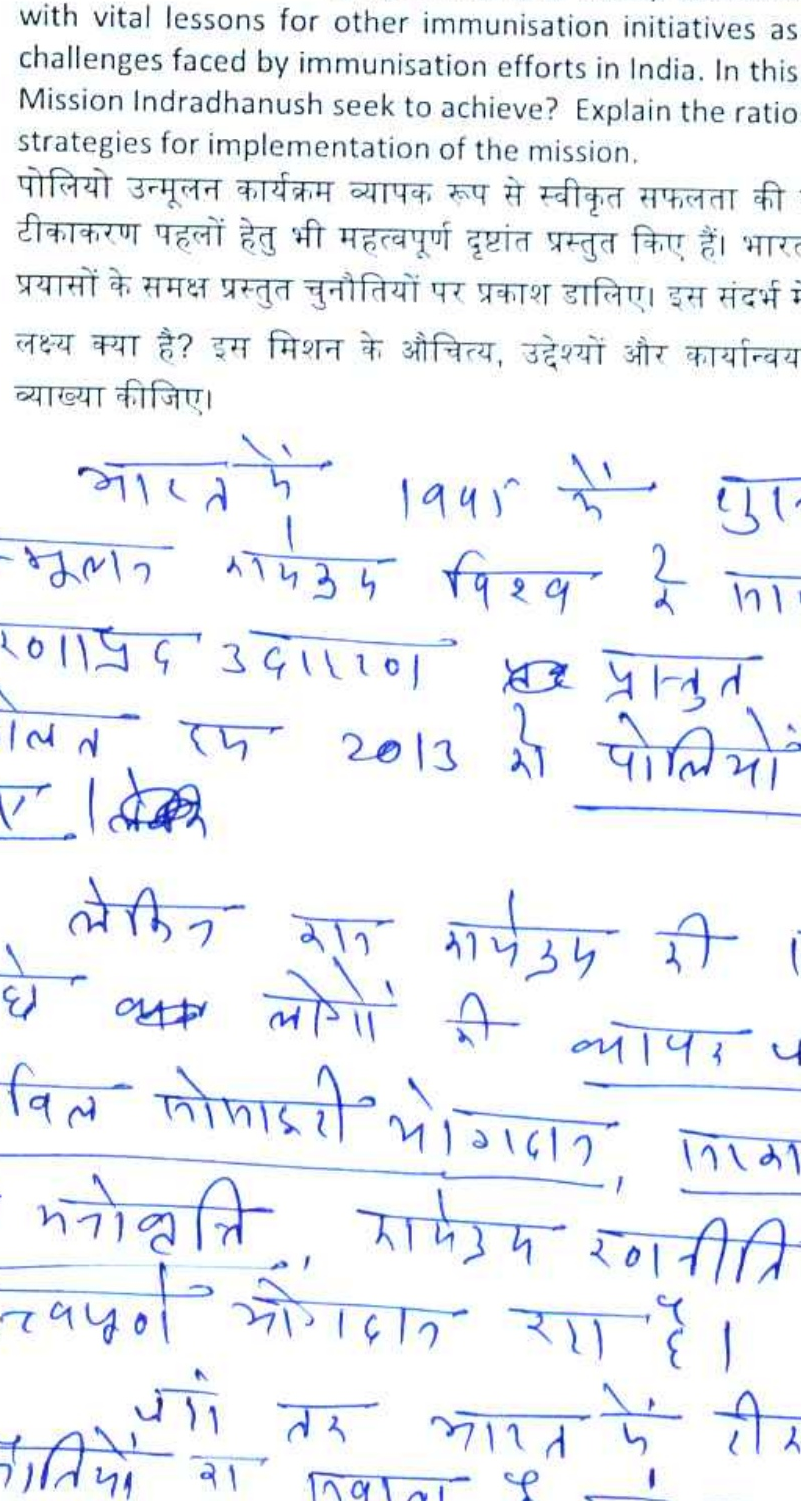 with vital lessons for other immunisation initiatives as
challenges faced by immunisation efforts in India. In this
Mission Indradhanush seek to achieve? Explain the ratio
strategies for implementation of the mission.
पोलियो उन्मूलन कार्यक्रम व्यापक रूप से स्वीकृत सफलता की
टीकाकरण पहलों हेतु भी महत्वपूर्ण दृष्टांत प्रस्तुत किए हैं। भारत
प्रयासों के समक्ष प्रस्तुत चुनौतियों पर प्रकाश डालिए। इस संदर्भ में
लक्ष्य क्या है? इस मिशन के औचित्य, उद्देश्यों और कार्यान्वय
व्याख्या कीजिए।
भारत में 1995 में
न्मूलन कार्यक्रम विश्व के
रणाप्रद उदाहरण प्रस्तुत
2013 में पोलियों
लेकिन इस कार्यक्रम की
लोगों की व्यापक
विल सोसाइटी योगदान,
मनोवृत्ति, कार्यक्रम रणनीति
त्वपूर्ण योगदान रहा है।
जहां तक भारत में टीक
का सवाल है